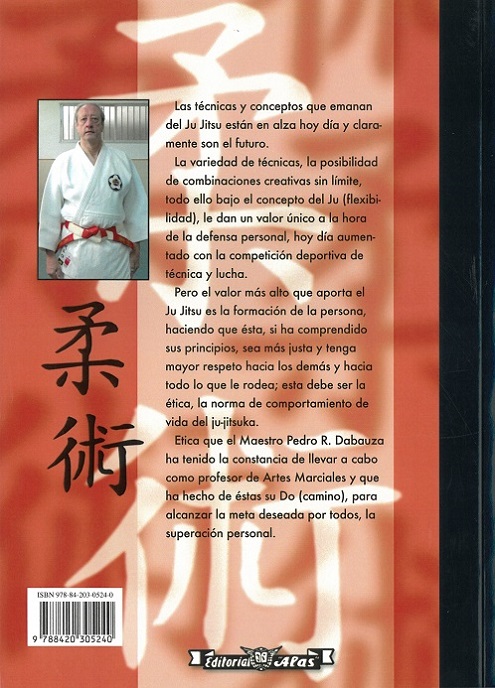 Las técnicas y conceptos que emanan
del Ju Jitsu están en alza hoy día y clara-
mente son el futuro.
La variedad de técnicas, la posibilidad
de combinaciones creativas sin límite,
todo ello bajo el concepto del Ju (flexibi-
lidad), le dan un valor único a la hora
de la defensa personal, hoy día aumen-
tado con la competición deportiva de
técnica y lucha.
Pero el valor más alto que aporta el
Ju Jitsu es la formación de la persona,
haciendo que ésta, si ha comprendido
sus principios, sea más justa y tenga
mayor respeto hacia los demás y hacia
todo lo que le rodea; esta debe ser la
ética, la norma de comportamiento de
vida del ju-jitsuka.
Etica que el Maestro Pedro R. Dabauza
ha tenido la constancia de llevar a cabo
como profesor de Artes Marciales y que
ha hecho de éstas su Do (camino), para
alcanzar la meta deseada por todos, la
superación personal.
柔術
柔術
ISBN 978-84-203-0524-0
9 788420 305240
Editorial Alas